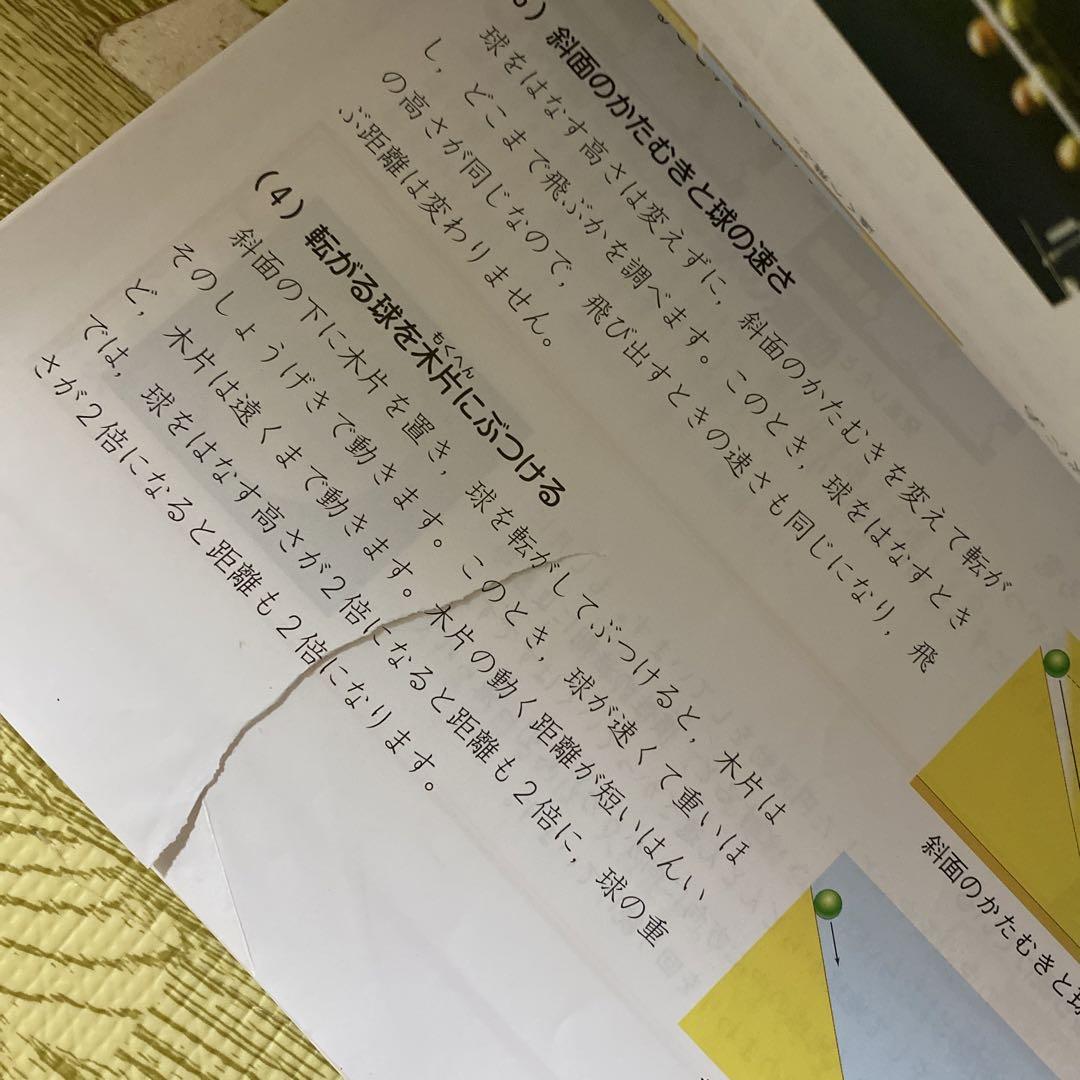 斜面のかたむきと球の速さ
球をはなす高さは変えずに，斜面のかたむきを変えて転が
し，どこまで飛ぶかを調べます。このとき，球をはなすとき
の高さが同じなので，飛び出すときの速さも同じになり，飛
ぶ距離は変わりません。
(4) 転がる球を木片にぶつける
もくへん
斜面の下に木片を置き，球を転がしてぶつけると，木片は
そのしょうげきで動きます。このとき，球が速くて重いほ
ど，木片は遠くまで動きます。木片の動く距離が短いはんい
では，球をはなす高さが２倍になると距離も２倍に，球の重
さが２倍になると距離も２倍になります。
斜面のかたむきと球